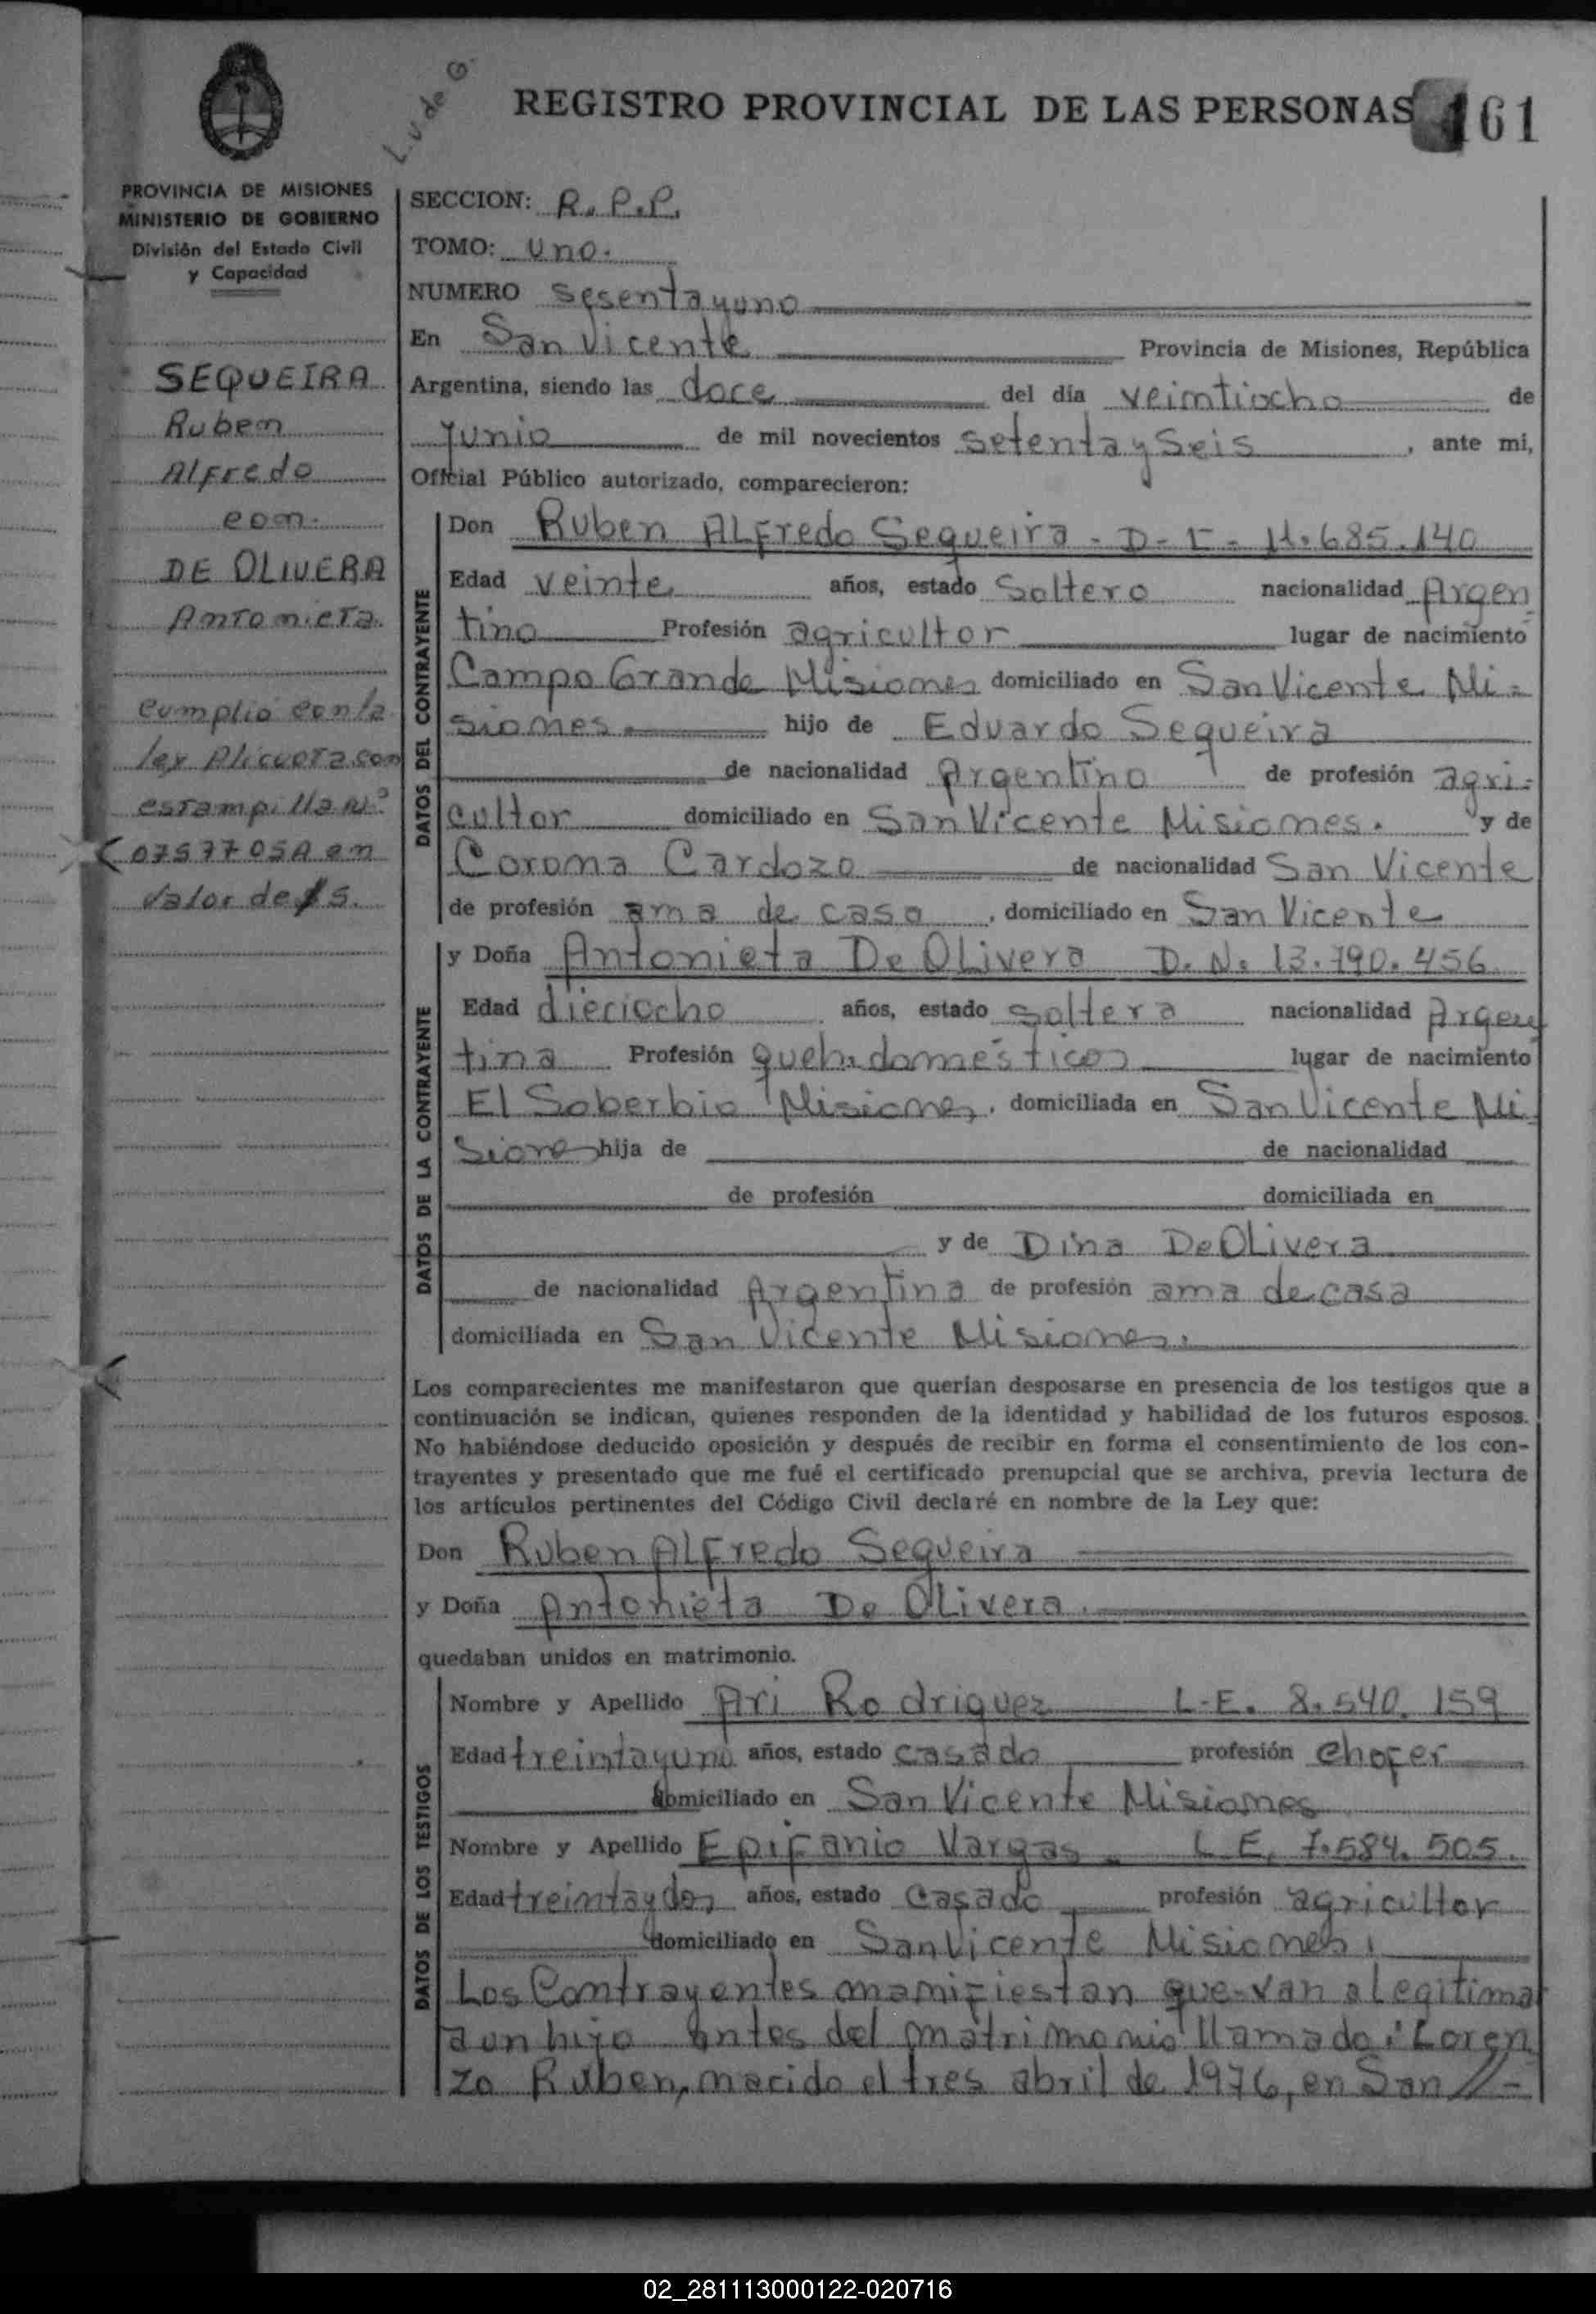 L. v de G.
REGISTRO PROVINCIAL DE LAS PERSONAS 161
PROVINCIA DE MISIONES
MINISTERIO DE GOBIERNO
División del Estado Civil
y Capacidad
SEQUEIRA
Ruben
Alfredo
con.
DE OLIVERA
Antonieta.
Cumplió con la
ley Alicuota con
estampilla Nº
0757705A en
valor de $ 5.
SECCION: R. P. P.
TOMO: Uno.
NUMERO Sesentayuno
En San Vicente Provincia de Misiones, República
Argentina, siendo las doce del día veimtiocho de
Junio de mil novecientos setenta y Seis, ante mi,
Oficial Público autorizado, comparecieron:
DATOS DEL CONTRAYENTE
Don Ruben ALFredo Sequeira - D-I- 11.685.140
Edad veinte años, estado Soltero nacionalidad Argen
tino Profesión agricultor lugar de nacimiento
Campo Grande Misiones domiciliado en San Vicente Mi-
siones. hijo de Eduardo Sequeira
de nacionalidad Argentino de profesión agri-
cultor domiciliado en San Vicente Misiones. y de
Corona Cardozo de nacionalidad San Vicente
de profesión ama de casa, domiciliado en San Vicente
DATOS DE LA CONTRAYENTE
y Doña Antonieta De OLivera D. N. 13.790.456
Edad dieciocho años, estado soltera nacionalidad Argen
tina Profesión queh. domésticos lugar de nacimiento
El Soberbio Misiones, domiciliada en San Vicente Mi
siones hija de de nacionalidad
de profesión domiciliada en
y de Dina De OLivera
de nacionalidad Argentina de profesión ama de casa
domiciliada en San Vicente Misiones.
Los comparecientes me manifestaron que querían desposarse en presencia de los testigos que a
continuación se indican, quienes responden de la identidad y habilidad de los futuros esposos.
No habiéndose deducido oposición y después de recibir en forma el consentimiento de los con-
trayentes y presentado que me fué el certificado prenupcial que se archiva, previa lectura de
los artículos pertinentes del Código Civil declaré en nombre de la Ley que:
Don Ruben ALFredo Sequeira
y Doña Antonieta De OLivera.
quedaban unidos en matrimonio.
DATOS DE LOS TESTIGOS
Nombre y Apellido Ari Rodriguez L-E. 8.540.159
Edad treintayuno años, estado casado profesión chofer
domiciliado en San Vicente Misiones
Nombre y Apellido Epifanio Vargas. L E, 7.584.505.
Edad treintaydos años, estado casado profesión agricultor
domiciliado en San Vicente Misiones.
Los Contrayentes manifiestan que van a Legitimar
a un hijo antes del matrimonio llamado: Loren
zo Ruben, nacido el tres abril de 1976, en San //-
02_281113000122-020716